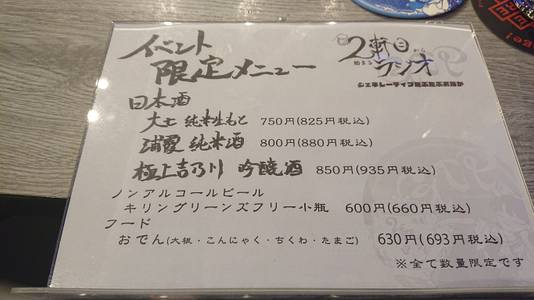 イベント
限定メニュー
2軒目
から
始まる
ラジオ
日本酒
大七 純米生もと 750円(825円税込)
浦霞 純米酒 800円(880円税込)
極上吉乃川 吟醸酒 850円(935円税込)
ノンアルコールビール
キリングリーンズフリー小瓶 600円(660円税込)
フード
おでん(大根・こんにゃく・ちくわ・たまご) 630円(693円税込)
※全て数量限定です